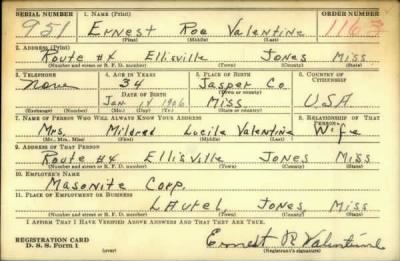 SERIAL NUMBER 1. NAME (Print) ORDER NUMBER
951 ERNEST Roe VALENTINE 1163
(First) (Middle) (Last)
2. ADDRESS (Print)
Route #4 Ellisville Jones Miss
(Number and street or R. F. D. number) (Town) (County) (State)
3. TELEPHONE 4. AGE IN YEARS 5. PLACE OF BIRTH 6. COUNTRY OF CITIZENSHIP
None 34 Jasper Co.
DATE OF BIRTH (Town or county)
Jan 14 1906 Miss USA
(Exchange) (Number) (Mo.) (Day) (Yr.) (State or country)
7. NAME OF PERSON WHO WILL ALWAYS KNOW YOUR ADDRESS 8. RELATIONSHIP OF THAT PERSON
Mrs. Mildred Lucile Valentine Wife
(Mr., Mrs., Miss) (First) (Middle) (Last)
9. ADDRESS OF THAT PERSON
Route #4 Ellisville Jones Miss
(Number and street or R. F. D. number) (Town) (County) (State)
10. EMPLOYER'S NAME
Masonite Corp.
11. PLACE OF EMPLOYMENT OR BUSINESS
Laurel, Jones Miss
(Number and street or R. F. D. number) (Town) (County) (State)
I AFFIRM THAT I HAVE VERIFIED ABOVE ANSWERS AND THAT THEY ARE TRUE.
REGISTRATION CARD
D. S. S. Form 1 (over) Ernest R Valentine
(Registrant's signature)